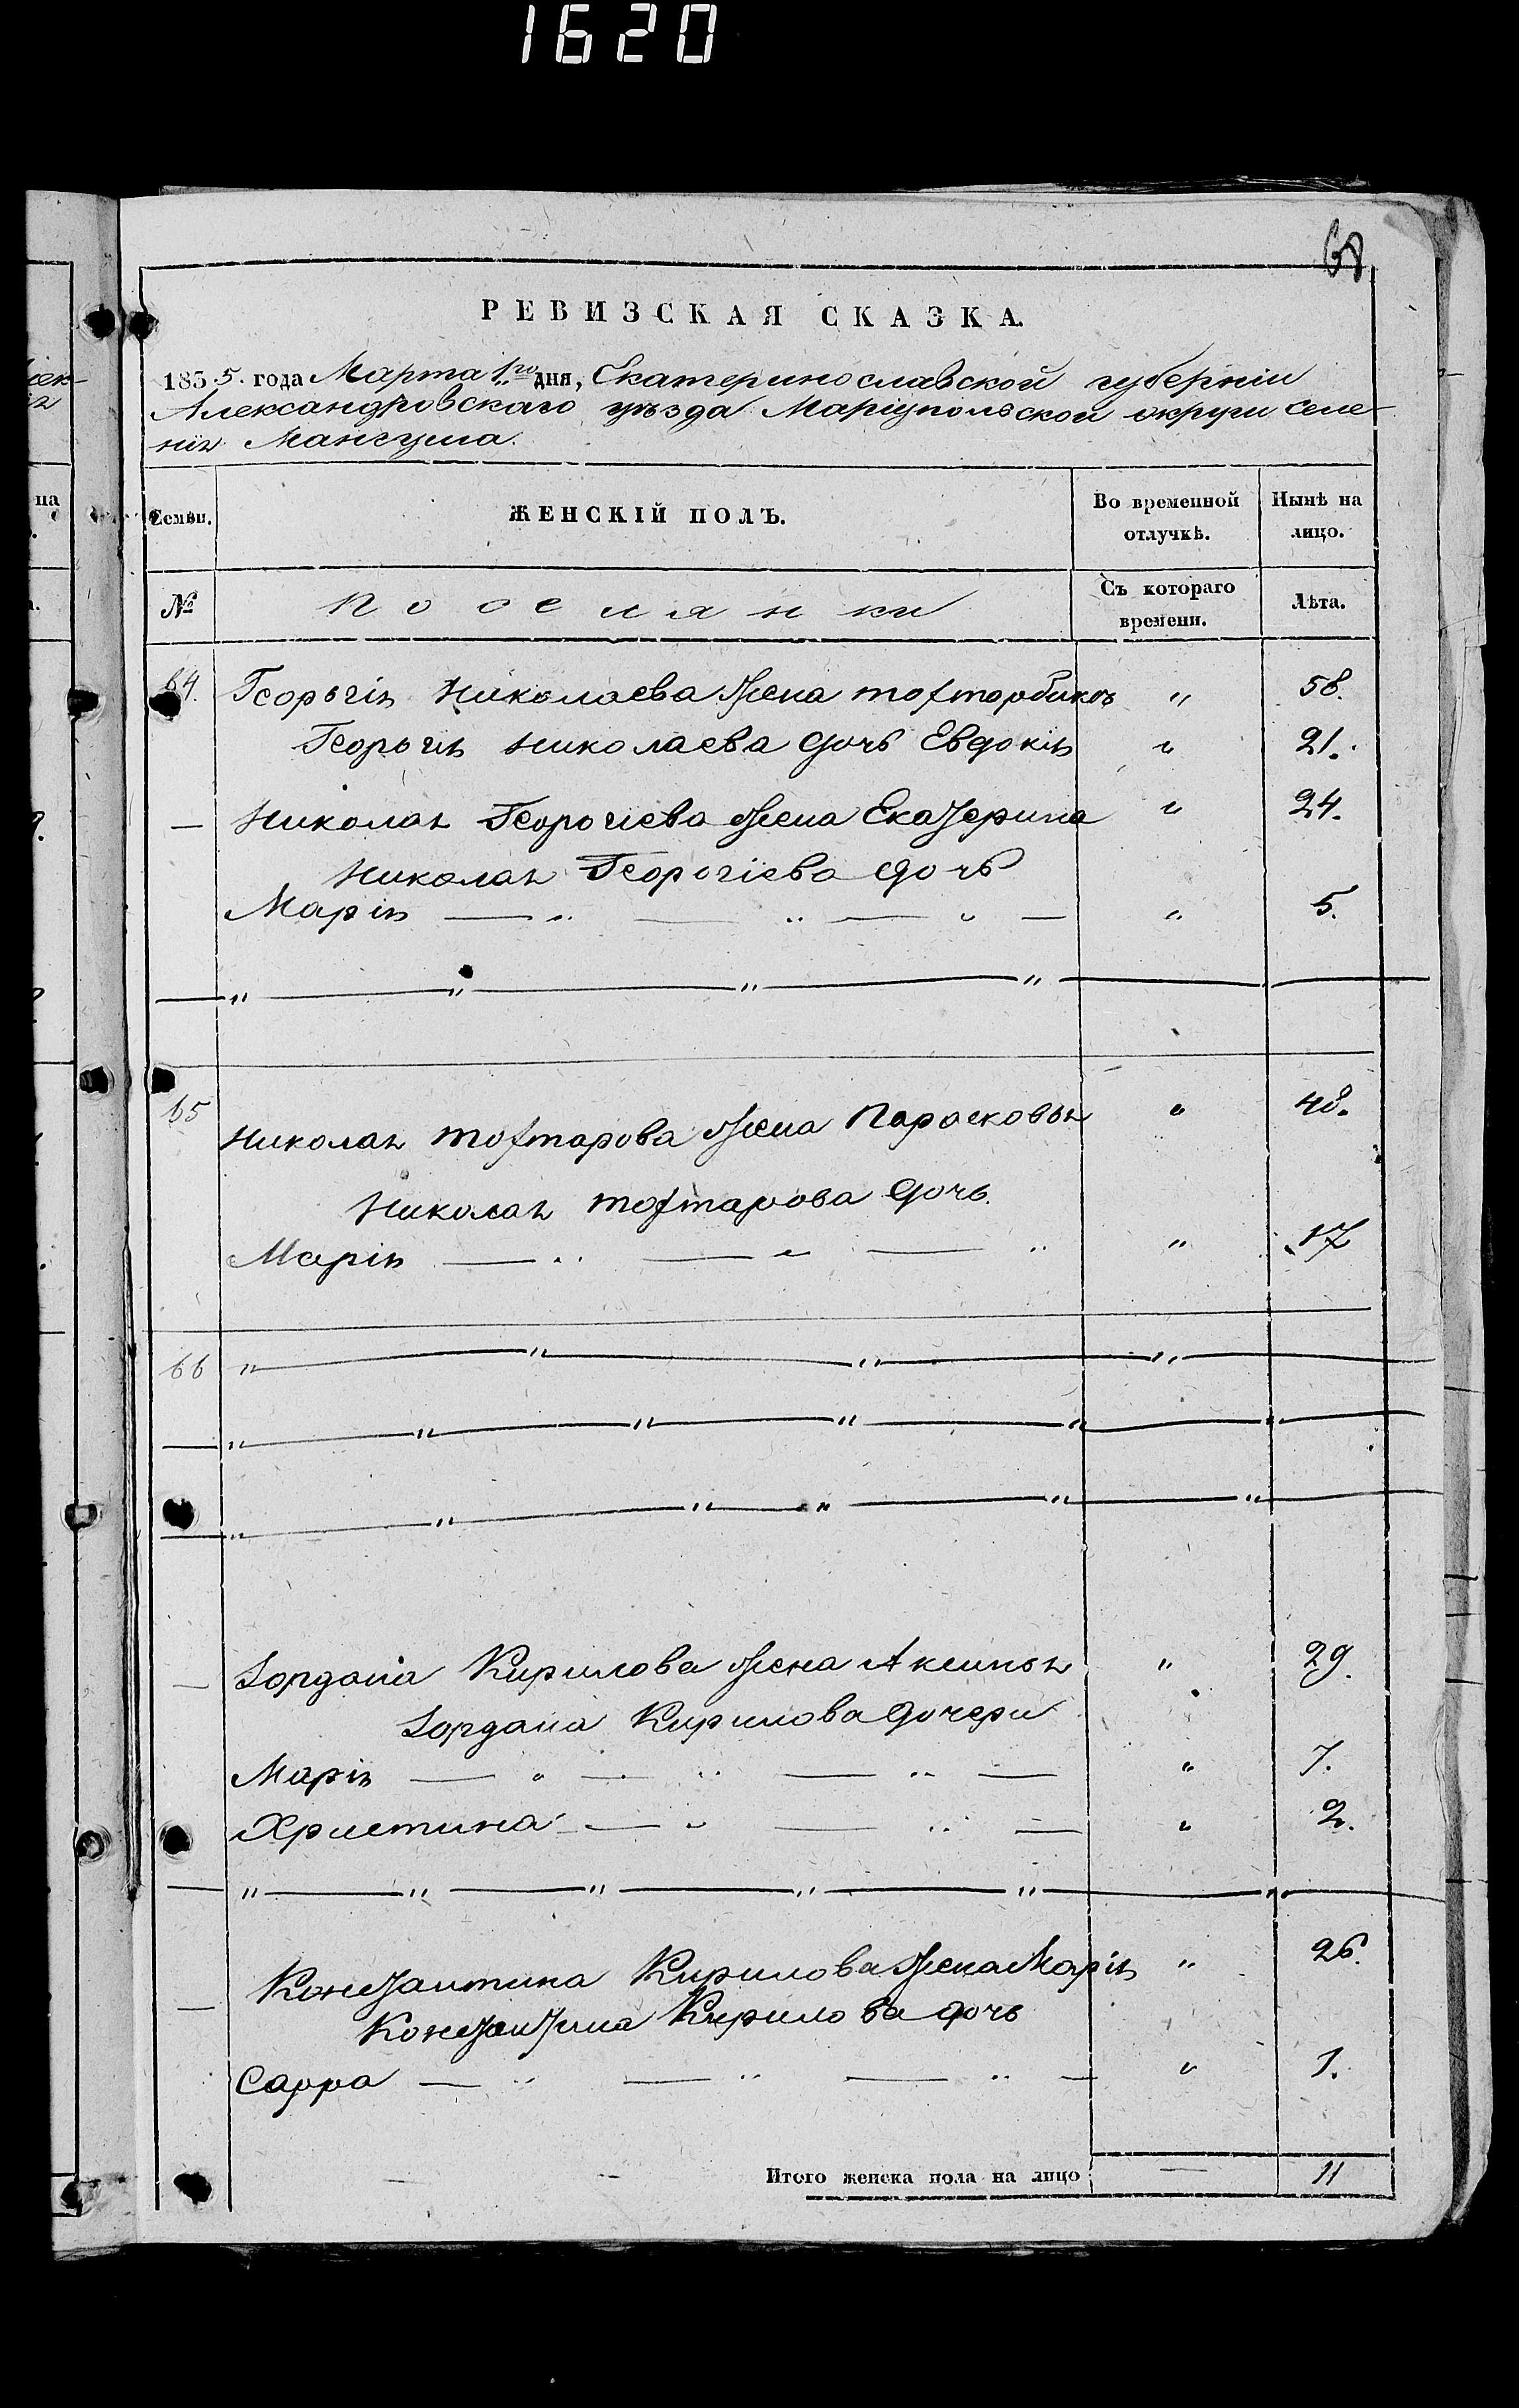 1620
68
РЕВИЗСКАЯ СКАЗКА.
1855. года Марта 1го дня, Екатеринославской губерніи
Александровскаго уѣзда Маріупольской округи селе-
нія Мангуша.
Семьи. ЖЕНСКІЙ ПОЛЪ. Во временной отлучкѣ. Нынѣ на лицо.
№ Поселянки Съ котораго времени. Лѣта.
64. Георьгія Николаева жена " 58.
Георьгія Николаева дочь Евдокія " 21.
— Николая Георгіева жена Екатерина " 24.
Николая Георгіева дочь
Марія — " — " — " — " 5.
— " — " — " — " —
65 Николая Тохтарова жена Парасковья " 48.
Николая Тохтарова дочь.
Марія — " — " — " " 17
66 " — " — " — " —
— " — " — " — " — " — " —
— " — " — " — " — " — " —
— Іордана Кирилова жена Аксинья " 29.
Іордана Кирилова дочери
Марія — " — " — " — " 7.
Христина — " — " — " 2.
— " — " — " — " — " — " —
— Константина Кирилова жена Марія " 26.
Константина Кирилова дочь
Сарра — " — " — " — " 1.
Итого женска пола на лицо — 11